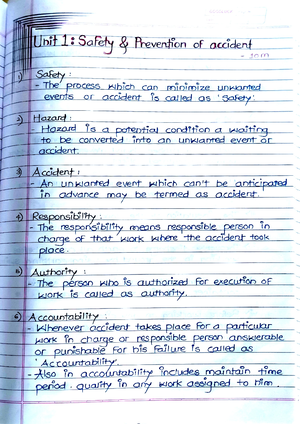 Unit 1 : Safety & Prevention of accident
1) Safety :
- The process which can minimize unwanted
events or accident is called as 'Safety'.
2) Hazard :
- Hazard is a potential condition a waiting
to be converted into an unwanted event or
accident.
3) Accident :
- An unwanted event which can't be anticipated
in advance may be termed as accident.
4) Responsibility :
- The responsibility means responsible person in
charge of that work where the accident took
place.
5) Authority :
- The person who is authorized for execution of
work is called as authority.
6) Accountability :
- Whenever accident takes place for a particular
work in charge or responsible person answerable
or punishable for his failure is called as
'Accountability
- Also in accountability includes maintain time
period, quality in any work assigned to him.